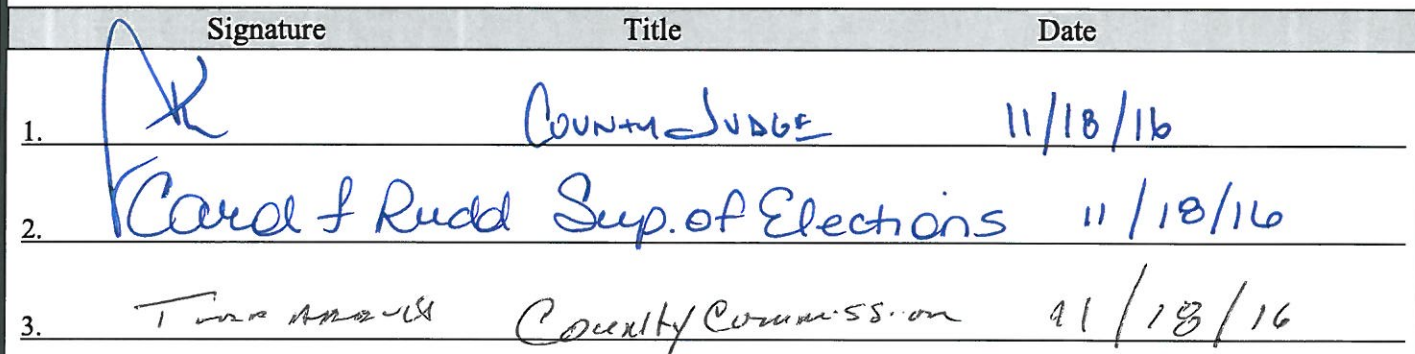 Signature Title Date
1. COUNTY JUDGE 11/18/16
2. Carol F Rudd Sup. of Elections 11/18/16
3. County Commission 11/18/16